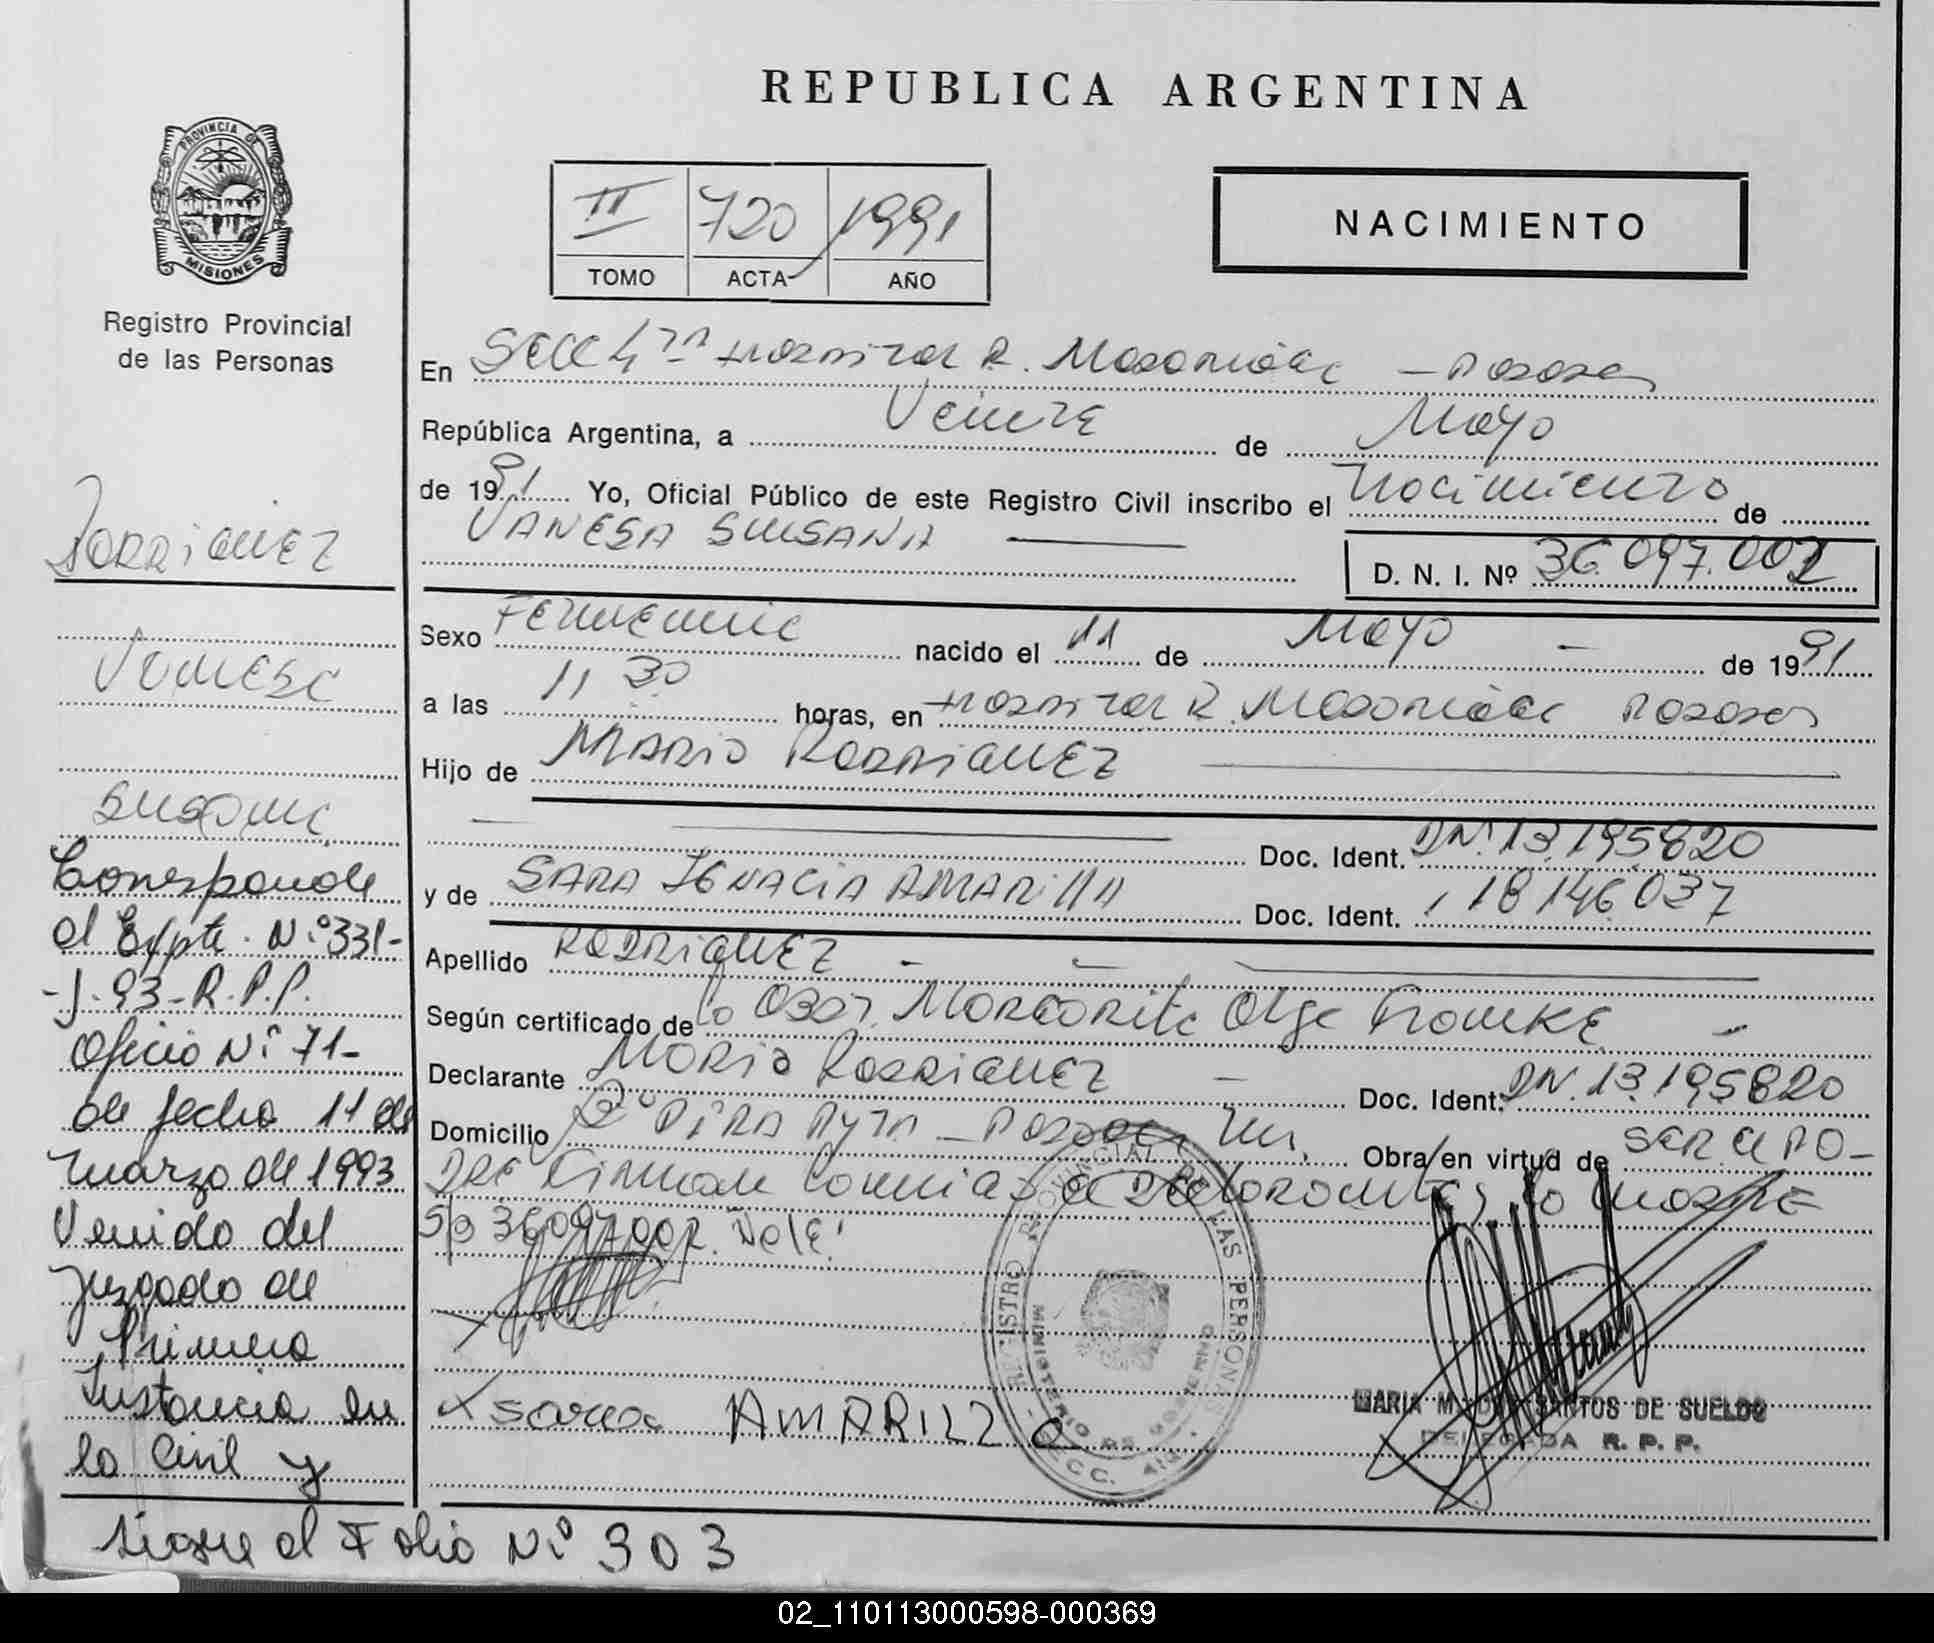 REPUBLICA ARGENTINA
PROVINCIA DE
MISIONES
Registro Provincial
de las Personas
II 720 1991
TOMO ACTA AÑO
NACIMIENTO
En Secc 4ta Hospital R. Madariaga - Posadas
República Argentina, a Veinte de Mayo
de 1991 Yo, Oficial Público de este Registro Civil inscribo el Nacimiento de
VANESA SUSANA
D. N. I. Nº 36.097.002
Sexo Femenino nacido el 11 de Mayo - de 1991
a las 11 30 horas, en Hospital R. Madariaga Posadas
Hijo de MARIO RODRIGUEZ
Doc. Ident. DNI 13.195820
y de SARA IGNACIA AMARILLA Doc. Ident. 18146037
Apellido RODRIGUEZ
Según certificado de la Obst. Margarita Olga
Declarante MARIO RODRIGUEZ - Doc. Ident. DN. 13.195820
Domicilio Bº PIRA PYTA - Posadas Mns. Obra en virtud de SER el PA-
DRE Firman Conmigo el Declarante y la madre
S/R 36097002. Vale!
x sara AMARILLA
REGISTRO PROVINCIAL DE LAS PERSONAS
MINISTERIO DE GOBIERNO
SECC. 4ta.
MARIA M. DOS SANTOS DE SUELDO
DELEGADA R. P. P.
RODRIGUEZ
Vanesa
Susana
Corresponde
al Expte. Nº 331-
-J-93-R.P.P.
Oficio Nº 71-
de fecha 11 de
marzo de 1993
Venido del
Juzgado de
Primera
Instancia en
lo Civil y
sigue al Folio Nº 303
02_110113000598-000369